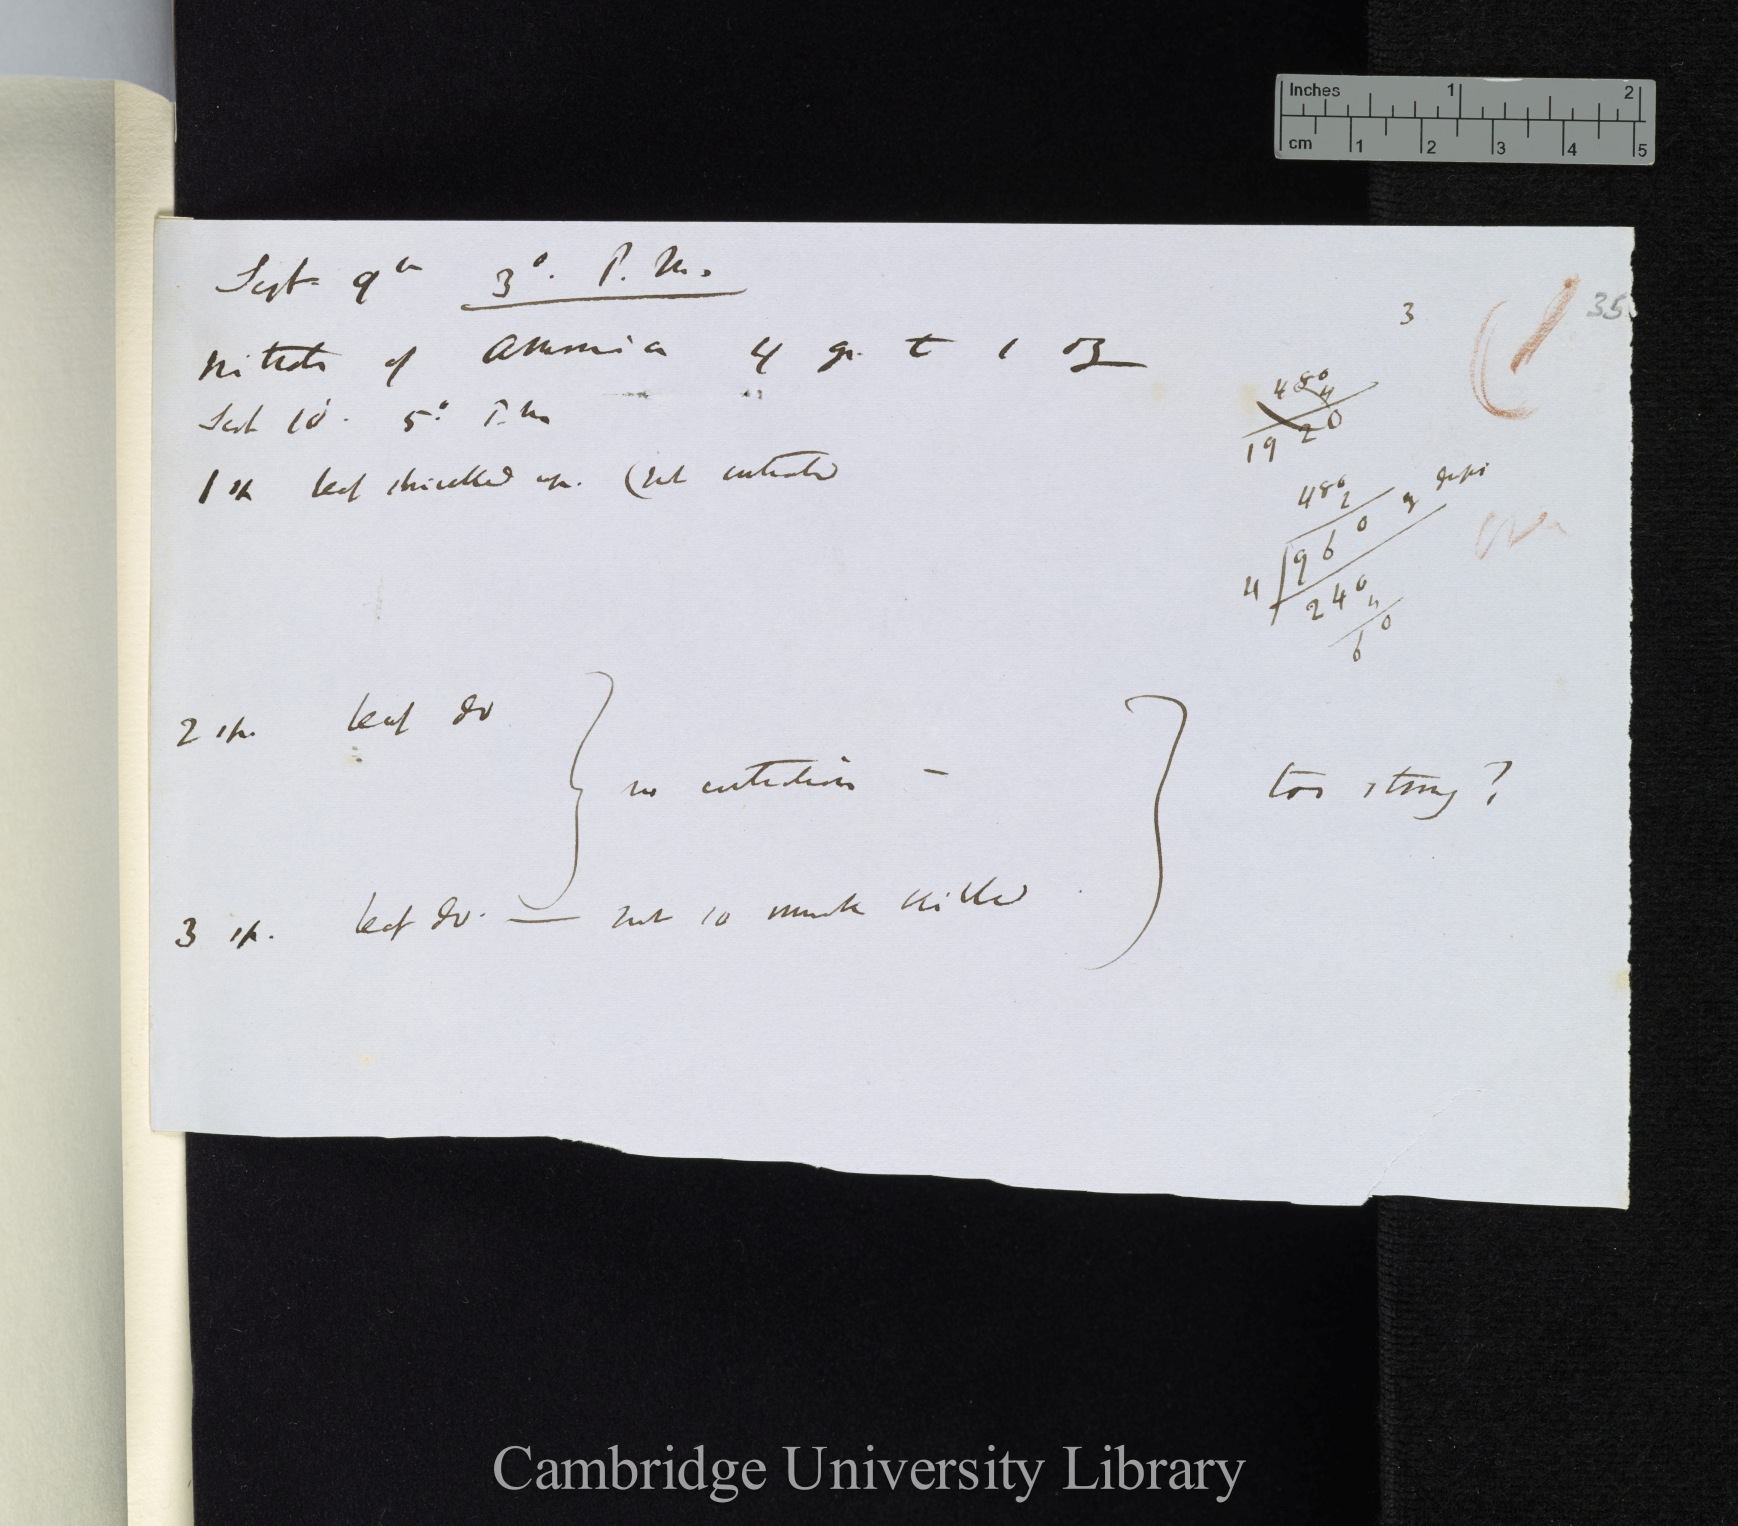 Inches 1 2
cm 1 2 3 4 5
Sept 9th 3°. P.M.
3
35
Nitrate of Ammonia 4 gr. to 1 oz
Sept 10. 5° P.M.
480
4
1920
1 sp leaf shrivelled up. (not contracted
480
2
960
4
240
4
60
2 sp. leaf do
no contraction —
too strong?
3 sp. leaf do. — not so much killed
Cambridge University Library